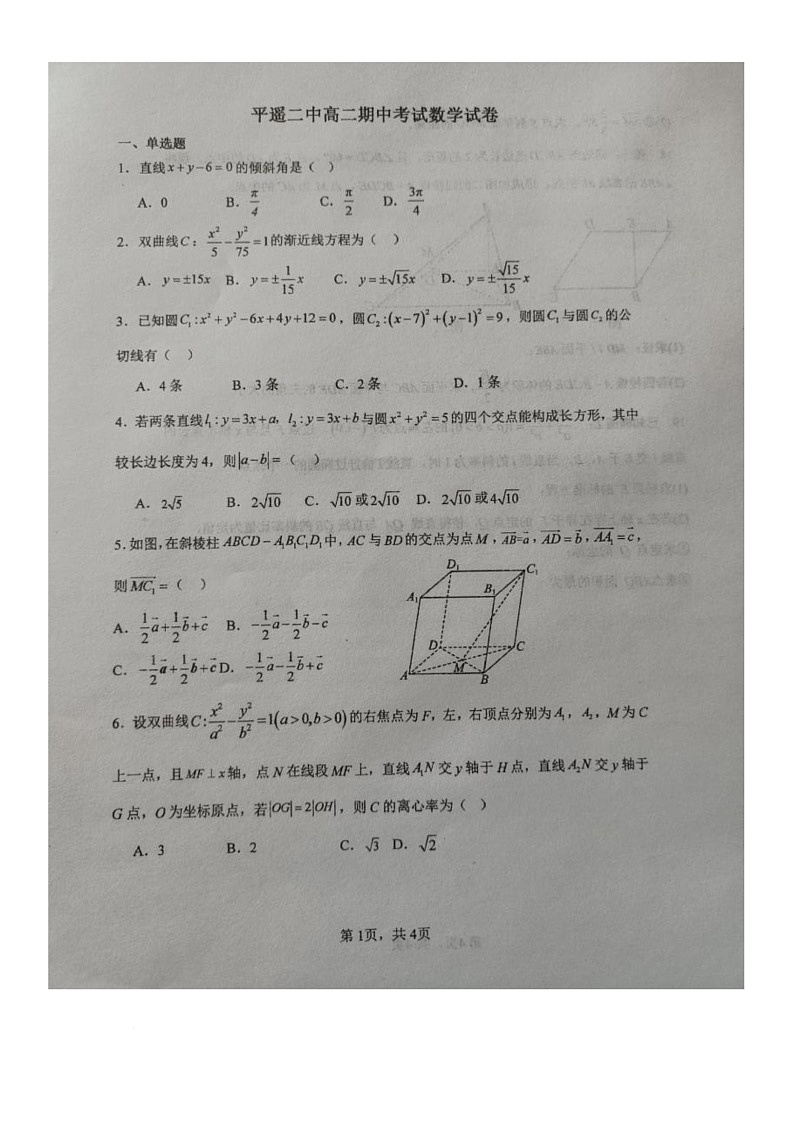 平遥二中高二期中考试数学试卷
一、单选题
1．直线 x+y-6=0 的倾斜角是（ ）
A．0 B．π/4 C．π/2 D．3π/4
2．双曲线 C：x²/5 - y²/75 =1 的渐近线方程为（ ）
A．y=±15x B．y=±1/15 x C．y=±√15x D．y=±√15/15 x
3．已知圆C₁:x²+y²-6x+4y+12=0，圆C₂:(x-7)²+(y-1)²=9，则圆C₁与圆C₂的公
切线有（ ）
A．4条 B．3条 C．2条 D．1条
4．若两条直线l₁:y=3x+a，l₂:y=3x+b与圆x²+y²=5的四个交点能构成长方形，其中
较长边长度为4，则|a-b|=（ ）
A．2√5 B．2√10 C．√10或2√10 D．2√10或4√10
5．如图，在斜棱柱 ABCD-A₁B₁C₁D₁中，AC与BD的交点为点M，AB=a，AD=b，AA₁=c，
则MC₁=（ ）
A．1/2 a+1/2 b+c B．-1/2 a-1/2 b-c
C．-1/2 a+1/2 b+c D．-1/2 a-1/2 b+c
D₁ C₁
A₁ B₁
D C
M
A B
6．设双曲线C:x²/a² - y²/b² =1(a>0,b>0)的右焦点为F，左，右顶点分别为A₁，A₂，M为C
上一点，且MF⊥x轴，点N在线段MF上，直线A₁N交y轴于H点，直线A₂N交y轴于
G点，O为坐标原点，若|OG|=2|OH|，则C的离心率为（ ）
A．3 B．2 C．√3 D．√2
第1页，共4页